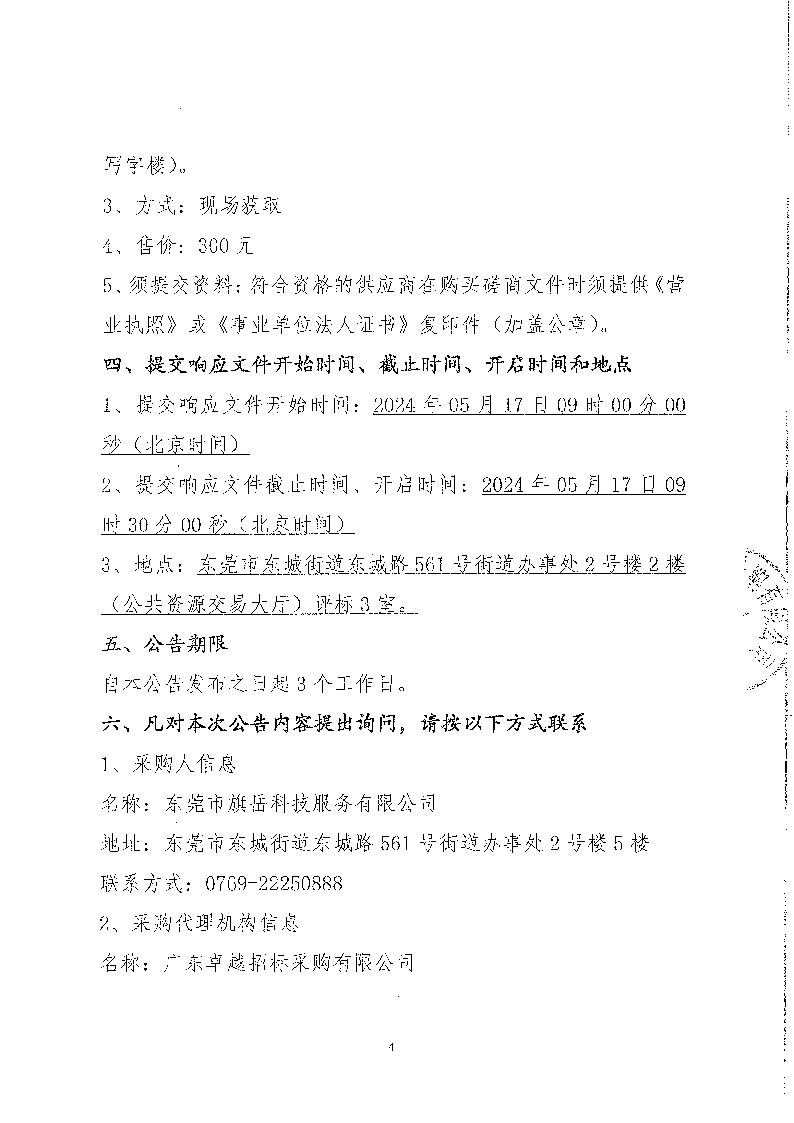 写字楼）。
3、方式：现场获取
4、售价：300 元
5、须提交资料：符合资格的供应商在购买磋商文件时须提供《营
业执照》或《事业单位法人证书》复印件（加盖公章）。
四、提交响应文件开始时间、截止时间、开启时间和地点
1、提交响应文件开始时间：2024 年 05 月 17 日 09 时 00 分 00
秒（北京时间）
2、提交响应文件截止时间、开启时间：2024 年 05 月 17 日 09
时 30 分 00 秒（北京时间）
3、地点：东莞市东城街道东城路 561 号街道办事处 2 号楼 2 楼
（公共资源交易大厅）评标 3 室。
五、公告期限
自本公告发布之日起 3 个工作日。
六、凡对本次公告内容提出询问，请按以下方式联系
1、采购人信息
名称：东莞市旗岳科技服务有限公司
地址：东莞市东城街道东城路 561 号街道办事处 2 号楼 5 楼
联系方式：0769-22250888
2、采购代理机构信息
名称：广东卓越招标采购有限公司
4